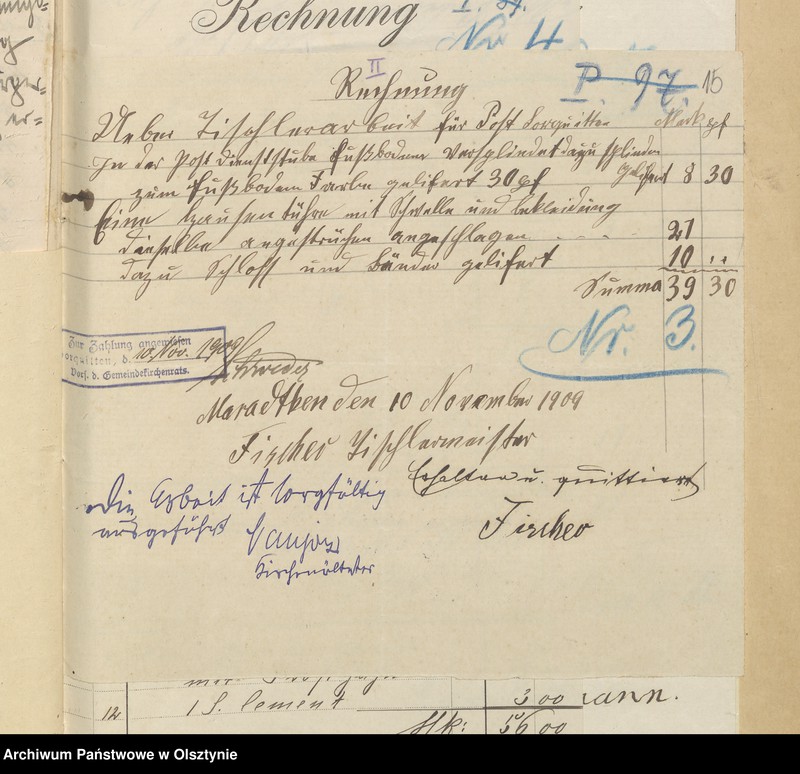 Rechnung
Nr 4
II
Rechnung
P. 97. 15
Ueber Tischlerarbeit für Post Sorquitten Mark pf
In der Post Dienststube Fußboden Verspliendet dazu splinden
zum Fußboden Farbe gelifert 30 pf gelifert 8 30
Eine Hausentühre mit Schwelle und bekleidung
dieselbe angestrüchen angeschlagen - - - 21
dazu Schloss und Bänder gelifert 10 ..
Summa 39 30
Nr. 3.
Zur Zahlung angewiesen
Sorquitten, d. 10. Nov. 1909
Vors. d. Gemeindekirchenrats.
Maradthen den 10 November 1909
Fischer Tischlermeister
Erhalten u. quittiert
Die Arbeit ist sorgfältig
ausgeführt
Fischer
Kirchenältester
12 1 S. Cement 3 00
Mk: 56 00
Archiwum Państwowe w Olsztynie